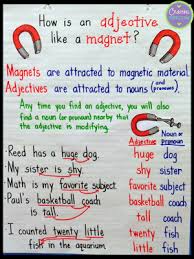 How is an adjective
like a magnet?
Magnets are attracted to magnetic material.
Adjectives are attracted to nouns (and pronouns).
Any time you find an adjective, you will also
find a noun (or pronoun) nearby that
the adjective is modifying.
Adjective Noun or Pronoun
- Reed has a huge dog. huge dog
- My sister is shy. shy sister
- Math is my favorite subject. favorite subject
- Paul's basketball coach basketball coach
is tall. tall coach
- I counted twenty little twenty fish
fish in the aquarium little fish